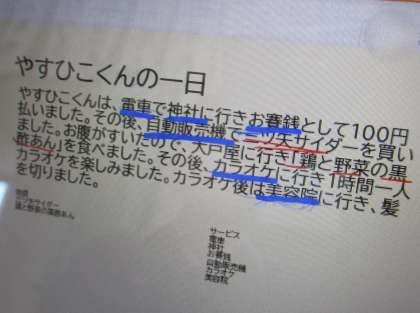 やすひこくんの一日
やすひこくんは、電車で神社に行きお賽銭として100円
払いました。その後、自動販売機で三ツ矢サイダーを買い
ました。お腹がすいたので、大戸屋に行き「鶏と野菜の黒
酢あん」を食べました。その後、カラオケに行き1時間一人
カラオケを楽しみました。カラオケ後は美容院に行き、髪
を切りました。
物質
三ツ矢サイダー
鶏と野菜の黒酢あん
サービス
電車
神社
お賽銭
自動販売機
カラオケ
美容院